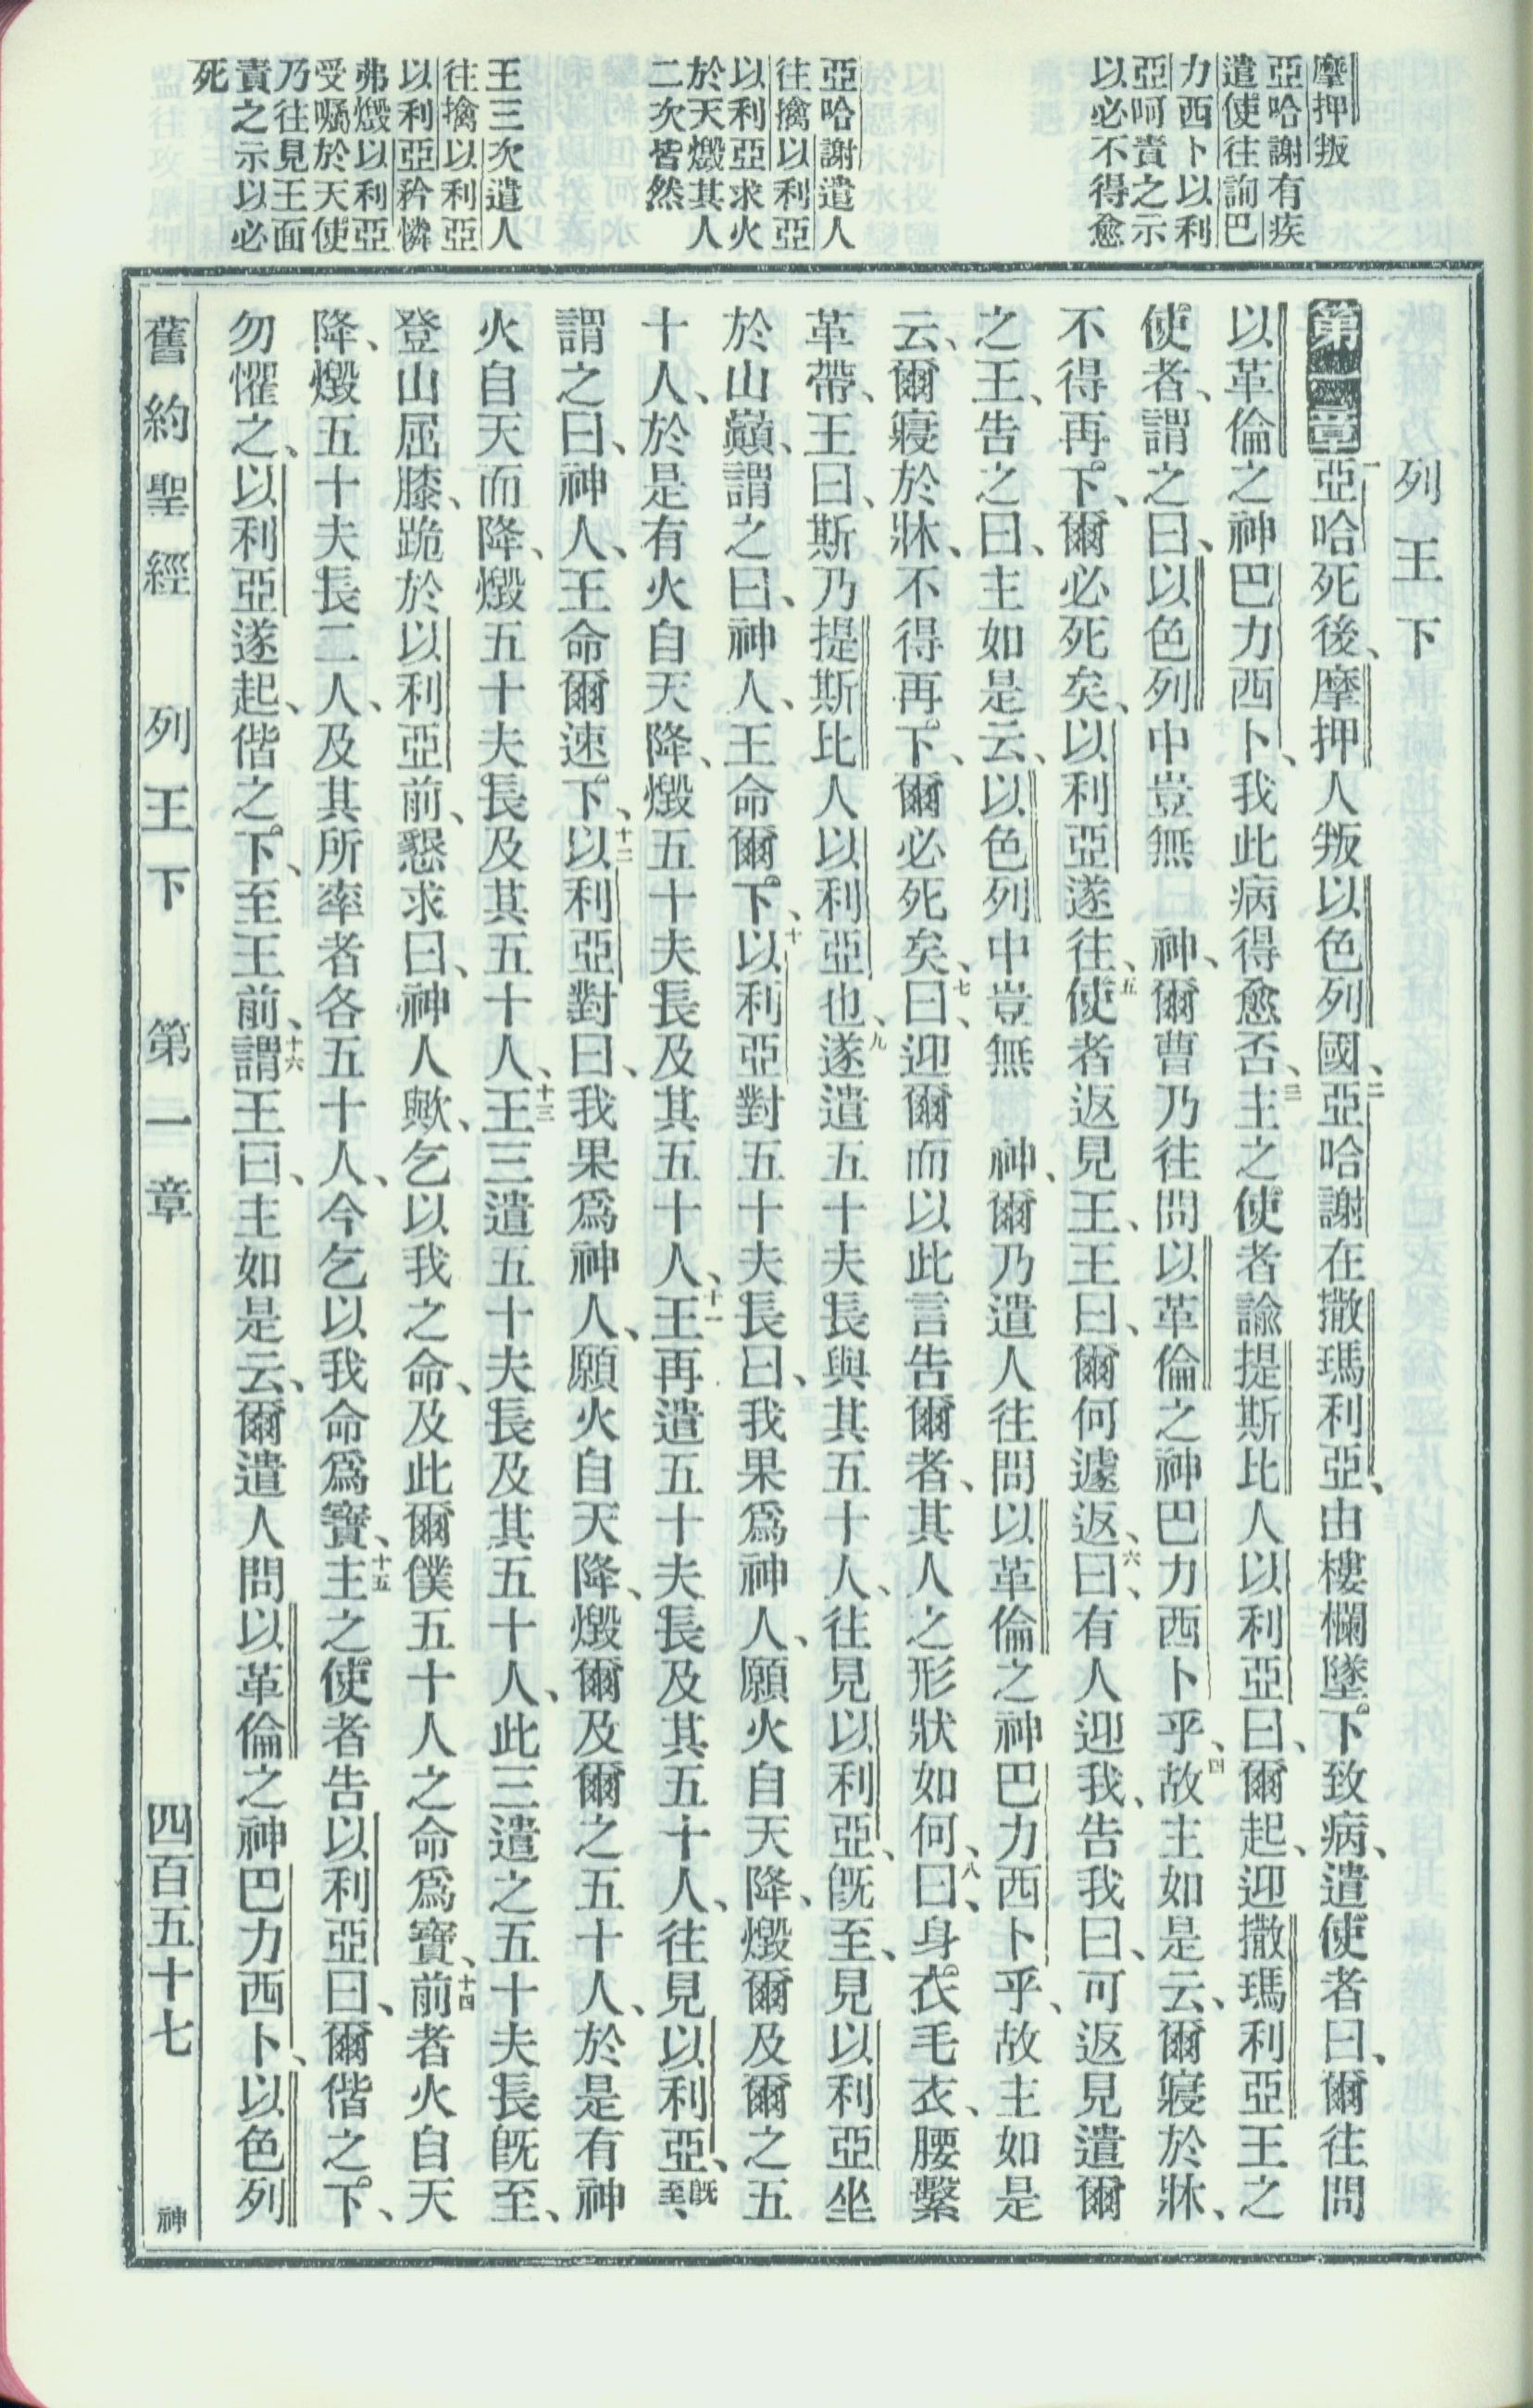 摩押叛
亞哈謝有疾
遣使往詢巴
力西卜以利
亞呵責之示
以必不得愈
亞哈謝遣人
往擒以利亞
以利亞求火
於天燬其人
二次皆然
王三次遣人
往擒以利亞
以利亞矜憐
弗燬以利亞
受囑於天使
乃往見王面
責之示以必
死
列王下
第一章 一亞哈死後、摩押人叛以色列國、二亞哈謝在撒瑪利亞、由樓欄墜下致病、遣使者曰、爾往問
以革倫之神巴力西卜、我此病得愈否、三主之使者諭提斯比人以利亞曰、爾起、迎撒瑪利亞王之
使者、謂之曰、以色列中豈無 神、爾曹乃往問以革倫之神巴力西卜乎、四故主如是云、爾寢於牀、
不得再下、爾必死矣、以利亞遂往、五使者返見王、王曰、爾何遽返、六曰、有人迎我、告我曰、可返見遣爾
之王、告之曰、主如是云、以色列中豈無 神、爾乃遣人往問以革倫之神巴力西卜乎、故主如是
云、爾寢於牀、不得再下、爾必死矣、七曰、迎爾而以此言告爾者、其人之形狀如何、八曰、身衣毛衣、腰繫
革帶、王曰、斯乃提斯比人以利亞也、九遂遣五十夫長與其五十人、往見以利亞、旣至、見以利亞坐
於山巔、謂之曰、神人、王命爾下、十以利亞對五十夫長曰、我果爲神人、願火自天降、燬爾及爾之五
十人、於是有火自天降、燬五十夫長及其五十人、十一王再遣五十夫長及其五十人、往見以利亞、旣至、
謂之曰、神人、王命爾速下、十二以利亞對曰、我果爲神人、願火自天降、燬爾及爾之五十人、於是有神
火自天而降、燬五十夫長及其五十人、十三王三遣五十夫長及其五十人、此三遣之五十夫長旣至、
登山屈膝、跪於以利亞前、懇求曰、神人歟、乞以我之命、及此爾僕五十人之命爲寶、十四前者火自天
降、燬五十夫長二人、及其所率者各五十人、今乞以我命爲寶、十五主之使者告以利亞曰、爾偕之下、
勿懼之、以利亞遂起、偕之下、至王前、十六謂王曰、主如是云、爾遣人問以革倫之神巴力西卜、以色列
舊約聖經 列王下 第一章 四百五十七 神